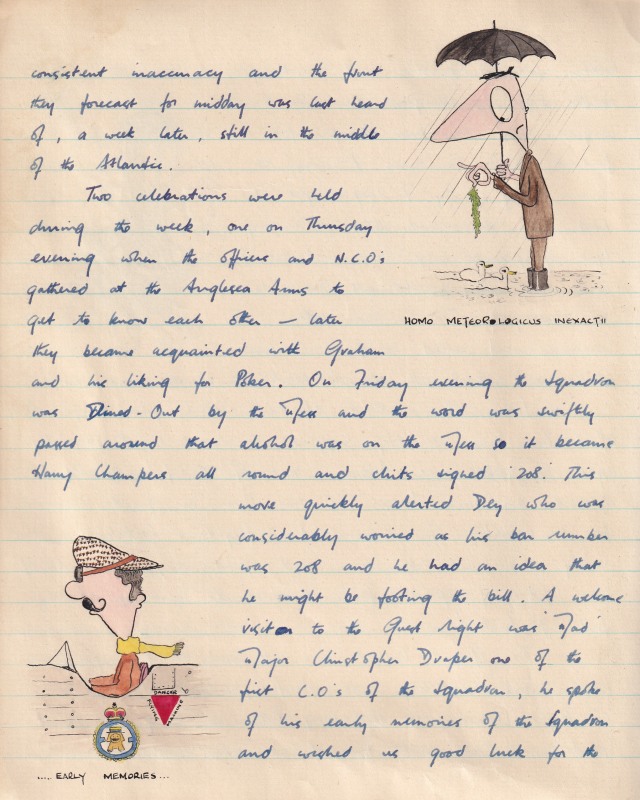 consistent inaccuracy and the front
they forecast for midday was last heard
of, a week later, still in the middle
of the Atlantic.
Two celebrations were held
during the week, one on Thursday
evening when the officers and N.C.O's
gathered at the Anglesea Arms to
get to know each other – later
they became acquainted with Graham
and his liking for Poker. On Friday evening the Squadron
was Dined-Out by the Mess and the word was swiftly
passed around that alcohol was on the Mess so it became
Harry Champers all round and chits signed '208'. This
move quickly alerted Dey who was
considerably worried as his bar number
was 208 and he had an idea that
he might be footing the bill. A welcome
visitor to the Guest Night was 'Mad'
Major Christopher Draper one of the
first C.O's of the Squadron, he spoke
of his early memories of the Squadron
and wished us good luck for the
HOMO METEOROLOGICUS INEXACTII
DANGER
FLYING MACHINE
..... EARLY MEMORIES...